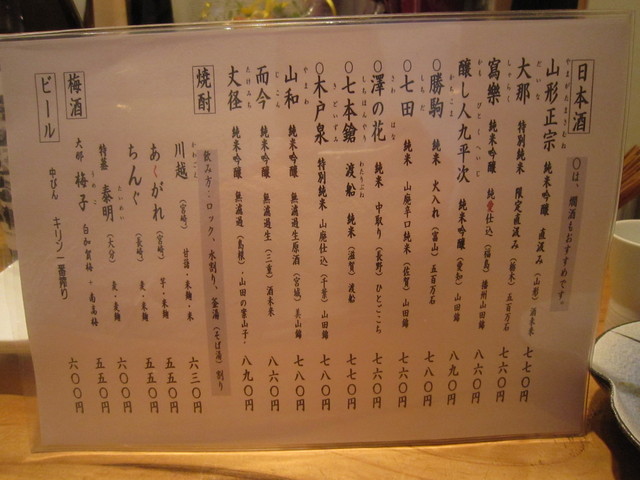 日本酒
○は、燗酒もおすすめです。
山形正宗 純米吟醸 直汲み (山形) 酒未来 七七〇円
大那 特別純米 限定直汲み (栃木) 五百万石 七六〇円
寫樂 純米吟醸 純愛仕込 (福島) 播州山田錦 八六〇円
醸し人九平次 純米吟醸 (愛知) 山田錦 八九〇円
○勝駒 純米 火入れ (富山) 五百万石 七八〇円
○七田 純米 山廃辛口純米 (佐賀) 山田錦 七六〇円
○澤の花 純米 中取り (長野) ひとごこち 七六〇円
○七本鎗 渡船 純米 (滋賀) 渡船 七八〇円
○木戸泉 特別純米 山廃仕込 (千葉) 山田錦 七八〇円
山和 純米吟醸 無濾過生原酒 (宮城) 美山錦 七八〇円
而今 純米吟醸 無濾過生 (三重) 酒未来 八六〇円
丈径 純米吟醸 無濾過 (島根)・山田の雫山子・ 八九〇円
焼酎
飲み方…ロック、水割り、釜湯(そば湯)割り
川越 (宮崎) 甘諸・米麹・米 六三〇円
あくがれ (宮崎) 芋・米麹 五五〇円
ちんぐ (長崎) 麦・米麹 五五〇円
特蒸 泰明 (大分) 麦・麦麹 六〇〇円
梅酒
大那 梅子 白加賀梅・南高梅 五五〇円
ビール
中びん キリン一番搾り 六〇〇円